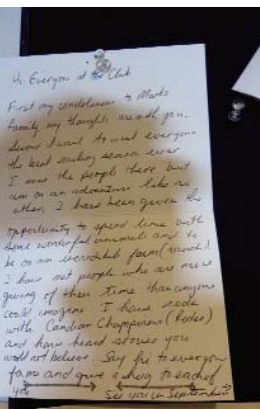 Hi Everyone at the Club
First my condolences to Marks
family my thoughts are with you.
Second I want to wish everyone
the best sailing season ever
I miss the people there but
am on an adventure like no
other, I have been given the
opportunity to spend time with
these wonderful animals and to
be on an incredible farm (ranch)
I have met people who are more
giving of their time than anyone
could imagine I have rode
with Canadian Champions (Rodeo)
and have heard stories you
would not believe. Say hi to everyone
for me and give a hug to each of
you
See you in September?